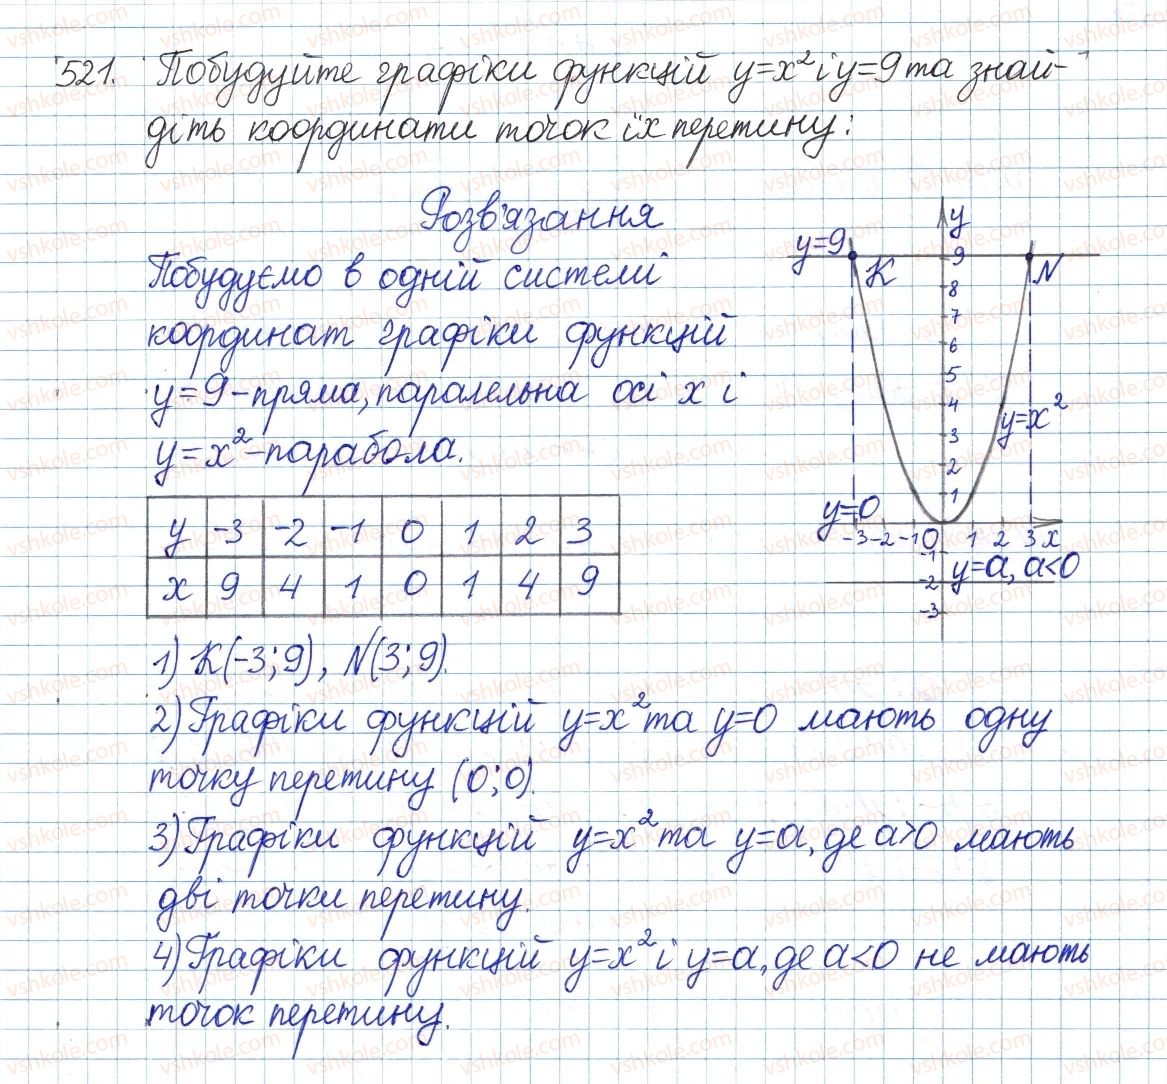 521. Побудуйте графіки функцій y=x² і y=9 та знай-
діть координати точок їх перетину:
Розв'язання
Побудуємо в одній системі
координат графіки функцій
y=9 – пряма, паралельна осі x і
y=x² – парабола.
y -3 -2 -1 0 1 2 3
x 9 4 1 0 1 4 9
y
y=9
K
N
9
8
7
6
5
4
3
2
1
y=x²
y=0
-3 -2 -1 0 1 2 3 x
-1
-2
-3
y=a, a<0
1) K(-3;9), N(3;9).
2) Графіки функцій y=x² та y=0 мають одну
точку перетину (0;0).
3) Графіки функцій y=x² та y=a, де a>0 мають
дві точки перетину.
4) Графіки функцій y=x² і y=a, де a<0 не мають
точок перетину.
vshkole.com